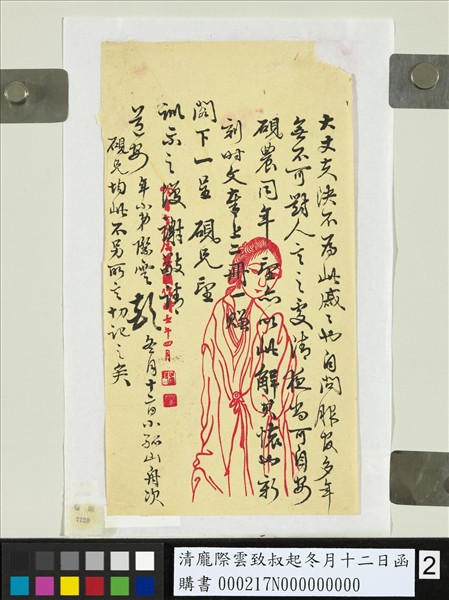 大丈夫決不爲此戚戚也自問服官多年
無不可對人言之處清夜尚可自安
硯農同年 以此解其懷 新
刻時文奉上二冊一贈
閣下一呈 硯兄
訓示之 謝敬請
道安 年小弟際雲 冬月十二日小孤山舟次
硯兄均此不另所言切記之矣
年四月
清龐際雲致叔起冬月十二日函
購書 000217N000000000
2